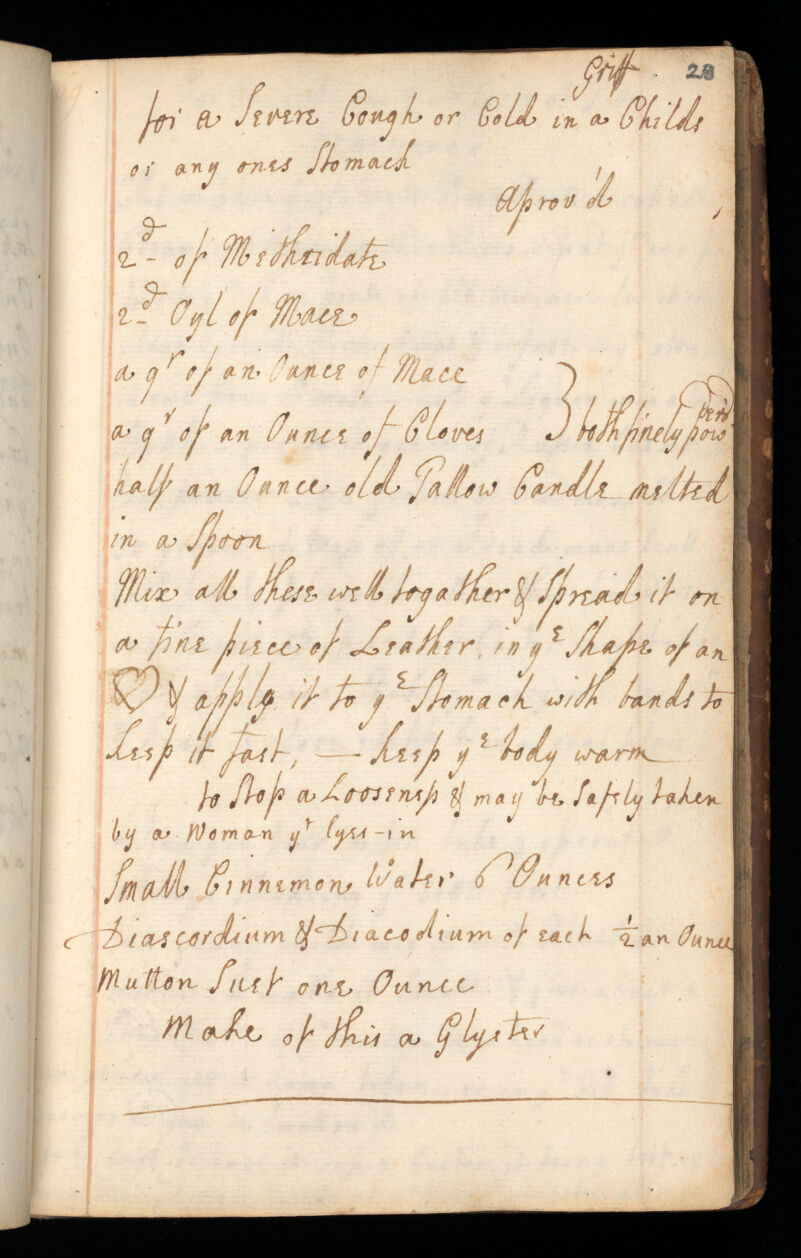 Griff 28
for a Severe Cough or Cold in a Childs
or any ones Stomach
Aprov'd
2d of Methridate
2d Oyl of Mace
a qr of an Ounce of Mace
a qr of an Ounce of Cloves } both finely powder'd
half an Ounce old Tallow Candle melted
in a Spoon
Mix all these well togather & Spread it on
a fine piece of Leather in ye Shape of an
♡ & apply it to ye Stomach with bands to
keep it fast, — keep ye body warm
to Stop a Looseness & may be Safely taken
by a Woman yt lyes-in
Small Cinnemon Water 6 Ounces
Diascordium & Diacodium of each ½ an Ounce
Mutton Suet one Ounce
Make of this a Glyster